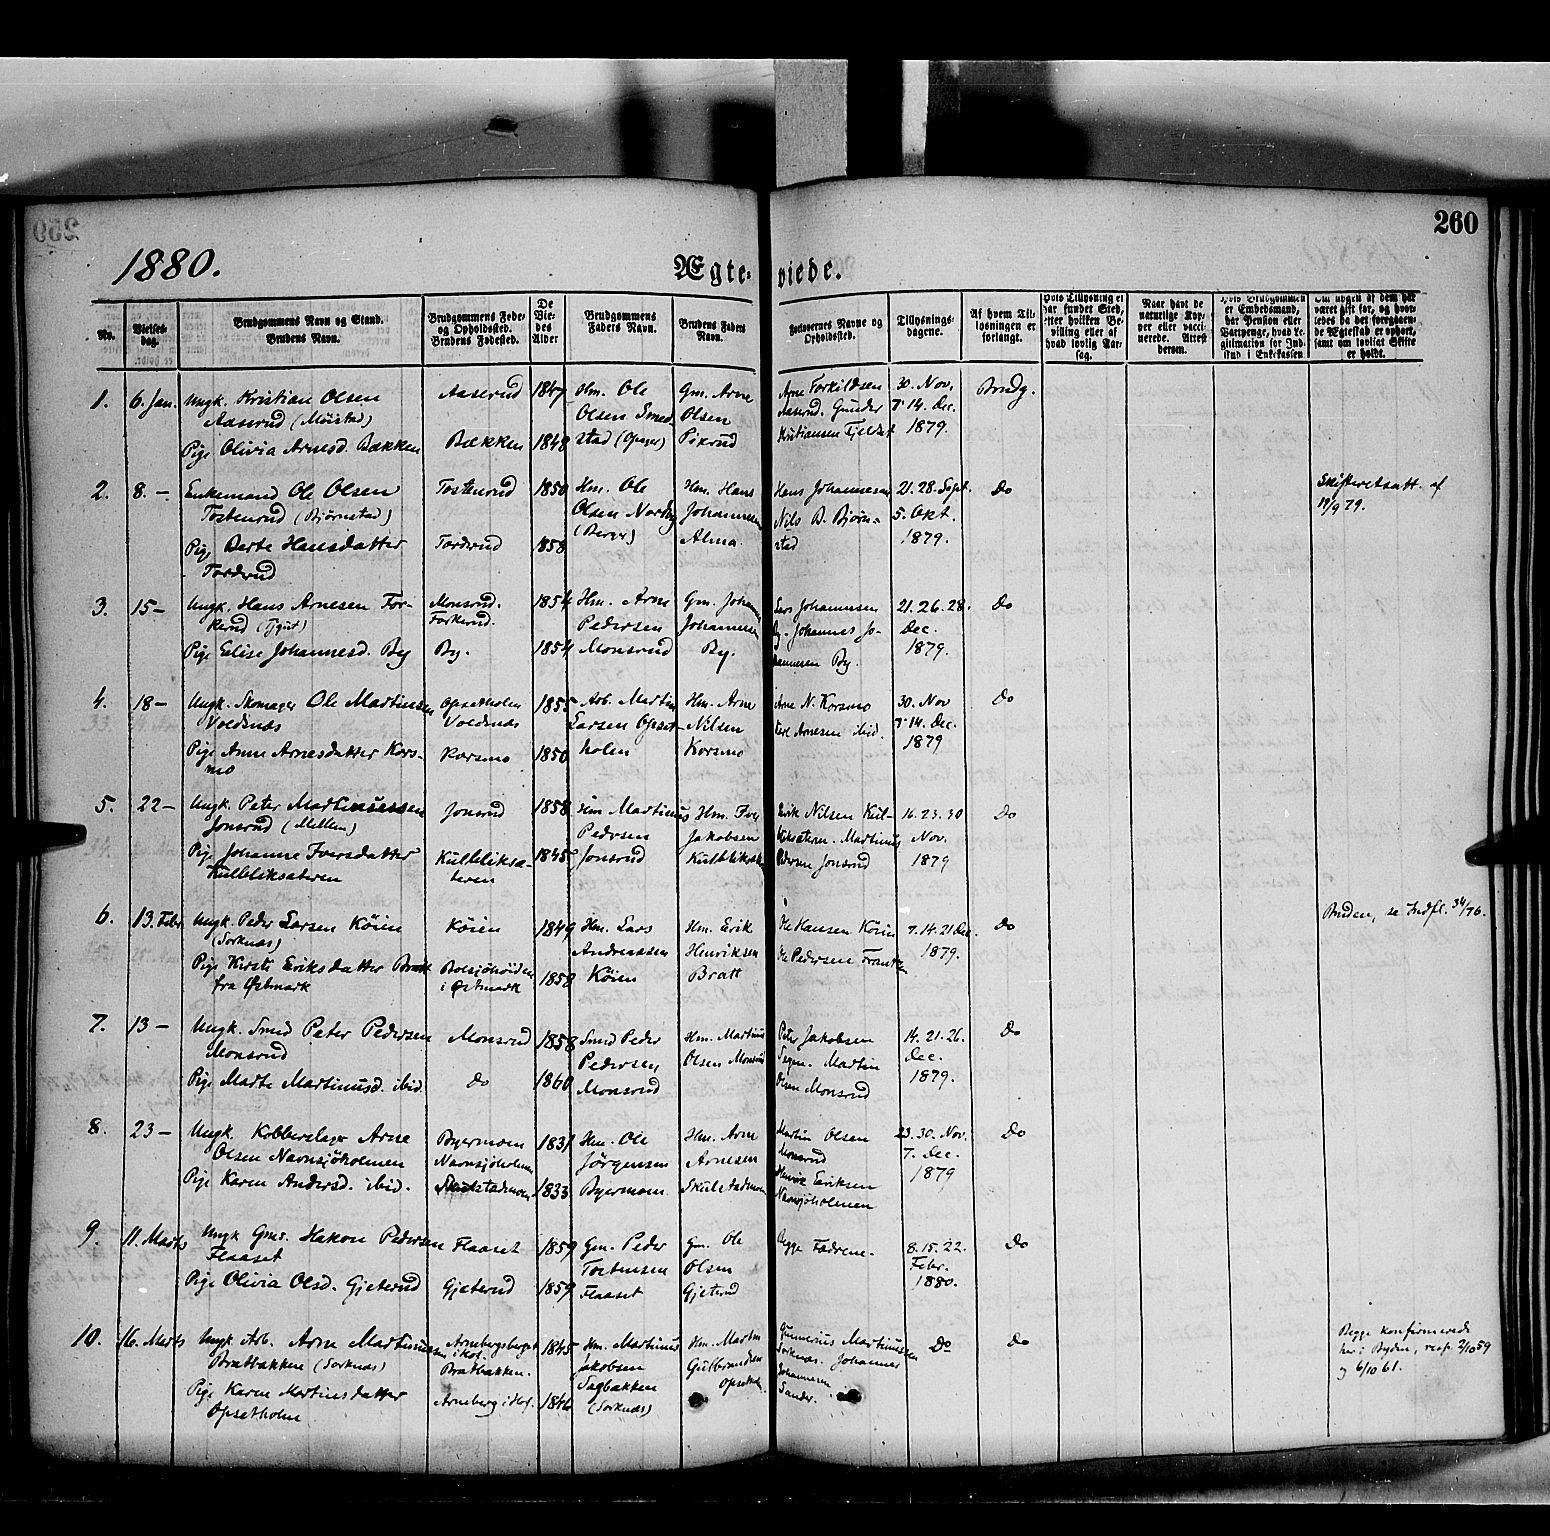 260
1880.
Ægteviede.
No.
Vielsesdag.
Brudgommens Navn og Stand.
Brudens Navn.
Brudgommens Føde- og Opholdssted.
Brudens Fødested.
De Viedes Alder
Brudgommens Faders Navn.
Brudens Faders Navn.
Forlovernes Navne og Opholdssted.
Tillysningsdagene.
Af hvem Tillysningen er forlangt.
Hvis Tillysning ei har fundet Sted, efter hvilken Bevilling eller af hvad lovlig Aarsag.
Naar havt de naturlige Kopper eller vaccinerede. Attest derom.
Hvis Brudgommen er Embedsmand, har Pension eller Vartpenge, hvad Legitimation for Indskud i Enkekassen
Om nogen af dem har været gift før, og hvorledes da det foregaaende Ægteskab er ophørt, samt om lovligt Skifte er holdt.
1. 6 Jan. Ungk. Kristian Olsen Aaserud 1847 Hm. Ole Gm. Arne Arne Torkildsen 30. Nov. Brudg.
Aaserud (Möistad) Olsen Smed- Olsen Aaserud. Gunder 7. 14. Dec.
Pige Olivia Arnesd. Bækken Bækken 1848 stad (Opager) Pixrud Kristiansen Fjeldset 1879.
2. 8. — Enkemand Ole Olsen Tostenrud 1850 Hm. Ole Hm. Hans Hans Johannesen 21. 28. Sept. Do Skifteretsatt. af
Tostenrud (Bjørnstad) Olsen Norby Johannesen Nils B. Bjørn- 5. Okt. 19/9 79.
Pige Berte Hansdatter Tordrud 1858 (Berger) Alma. stad 1879.
Tordrud
3. 15 — Ungk. Hans Arnesen For- Monsrud. 1854 Hm. Arne Gm. Johannes Lars Johannesen 21. 26. 28. Do
kerud Forkerud. Pedersen Johannesen By. Johannes Jo- Dec.
Pige Eelise Johannesd. By By. 1854 Monsrud By. hannesen By. 1879.
4. 18 — Ungk. Skomager Ole Martinsen Opsetholen 1855 Arb. Martin Hm. Arne Arne N. Korsmo 30. Nov Do
Voldnæs Voldnæs Larsen Opset- Nilsen Arnesen ibid. 7. 14. Dec.
Pige Anne Arnesdatter Kors- Korsmo 1850 holen Korsmo 1879
mo
5. 22 — Ungk. Peter Martinusssen Jonsrud 1858 Hm Martinus Hm. Iver Erik Nilsen Kul- 16. 23. 30 Do
Jonsrud (Mellem) Pedersen Jakobsen Martinus Nov.
Pige Johanne Iversdatter Kulbliksæ- 1845 Jonsrud Kulbliksæt Pedersen Jonsrud 1879
Kulbliksæteren teren
6. 13. Febr. Ungk. Peder Larsen Köien Köien 1849 Hm. Lars Hm. Erik Ole Hansen Köien 7. 14. 21 Dec. Do Bruden, se Indfl. 34/76.
(Sorknæs) Andreassen Henriksen Ole Pedersen 1879.
Pige Kirsti Eriksdatter Bratt Bolsjöhöiden 1858 Köien Bratt
fra Østmark i Østmark
7. 13 — Ungk. Smed Peter Pedersen Monsrud 1858 Smed Peder Hm. Martinus Peter Jakobsen 14. 21. 26. Do
Monsrud Pedersen Olsen Monsrud Martin Dec.
Pige Marte Martinusd. ibid. Do 1860 Monsrud Olsen Monsrud 1879.
8. 23 — Ungk. Kobberslager Arne Byermoen 1831 Hm. Ole Hm. Arne Martin Olsen 23. 30. Nov. Do
Olsen Navnsjöholmen Navnsjöholmen Jörgensen Arnesen Monsrud 7. Dec.
Pige Karen Andersd. ibid. Skulstadmoen 1833 Byermoen Skulstadmoen Henrik Eriksen 1879
Navnsjöholmen
9. 11. Marts Ungk Gms. Hakon Pedersen Flaaset 1859 Gm. Peder Gm. Ole Begge Fædrene. 8. 15. 22. Do
Flaaset Tostensen Olsen Febr.
Pige Olivia Olsd. Gjeterud Gjeterud 1859 Flaaset Gjeterud 1880.
10. 16. Marts Ungk. Arb. Arne Martinussen Arnebergsberget 1845 Hm. Martinus Hm. Martin Gunnerius Martinussen Do Do Begge konfirmerede
Bratbakken (Sorknæs) i Hof. Bratbakken. Jakobsen Gulbrandsen Sorknæs. Johannes her i Bygden, resp. 2/10 59
Pige Karen Martinsdatter Arneberg i Hof. 1846 Sagbakken Opsethol. Johannesen og 6/10 61.
Opsetholm (Sorknæs) Sander.